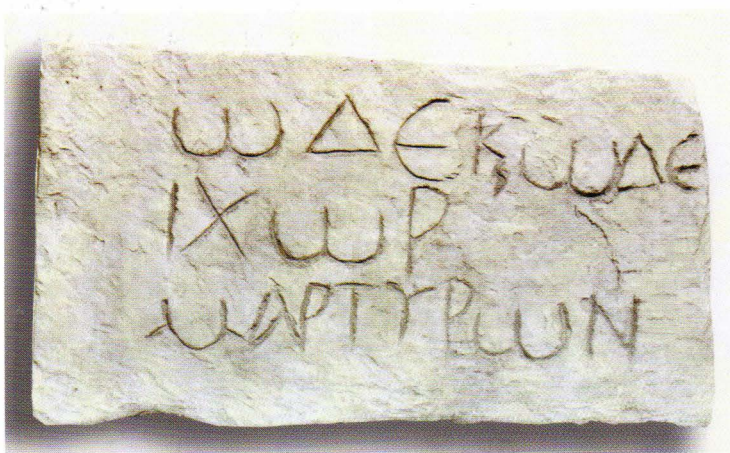 ωΔЄ Κ, ωΔЄ
ΙΧωΡ
μΑΡΤΥΡωΝ